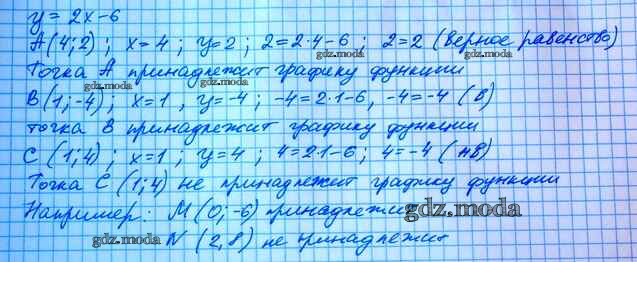 y = 2x - 6
A(4; 2) ; x = 4 ; y = 2 ; 2 = 2·4 - 6 ; 2 = 2 (верное равенство)
gdz.moda gdz.moda
Точка A принадлежит графику функции
gdz.moda
B(1; -4) ; x = 1 , y = -4 ; -4 = 2·1 - 6, -4 = -4 (В)
точка B принадлежит графику функции
C (1; 4) ; x = 1 ; y = 4 ; 4 = 2·1 - 6 ; 4 = -4 (НВ)
gdz.moda gdz.moda
Точка C (1; 4) не принадлежит графику функции
Например: M (0; -6) принадлежит
gdz.moda
N (2, 8) не принадлежит
gdz.moda